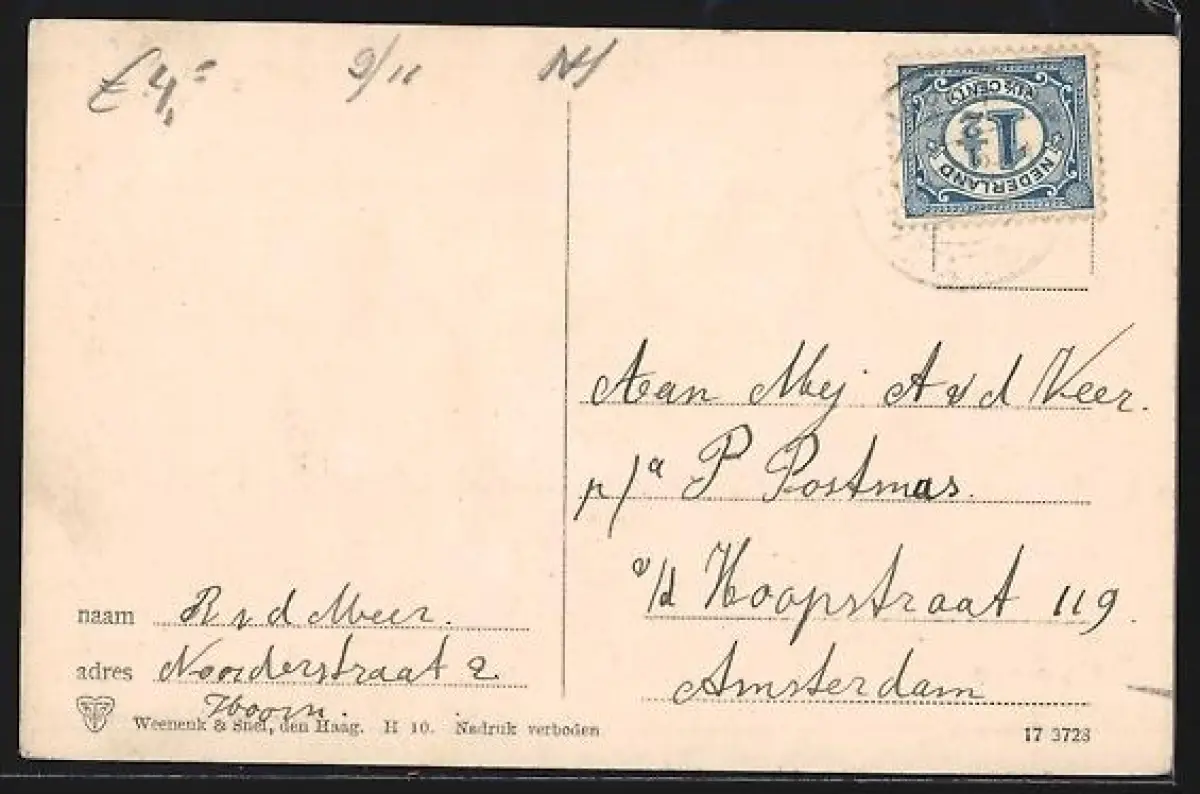 £ 4,=
9/11
NEDERLAND
1 1/2
(1½ CENT)
Aan Mej A v d Veer.
p/a P Postmas.
v/d Hoopstraat 119
Amsterdam
naam R v d Meer.
adres Noorderstraat 2
Hoorn.
Weenenk & Snel, den Haag. H 10. Nadruk verboden
17 3723